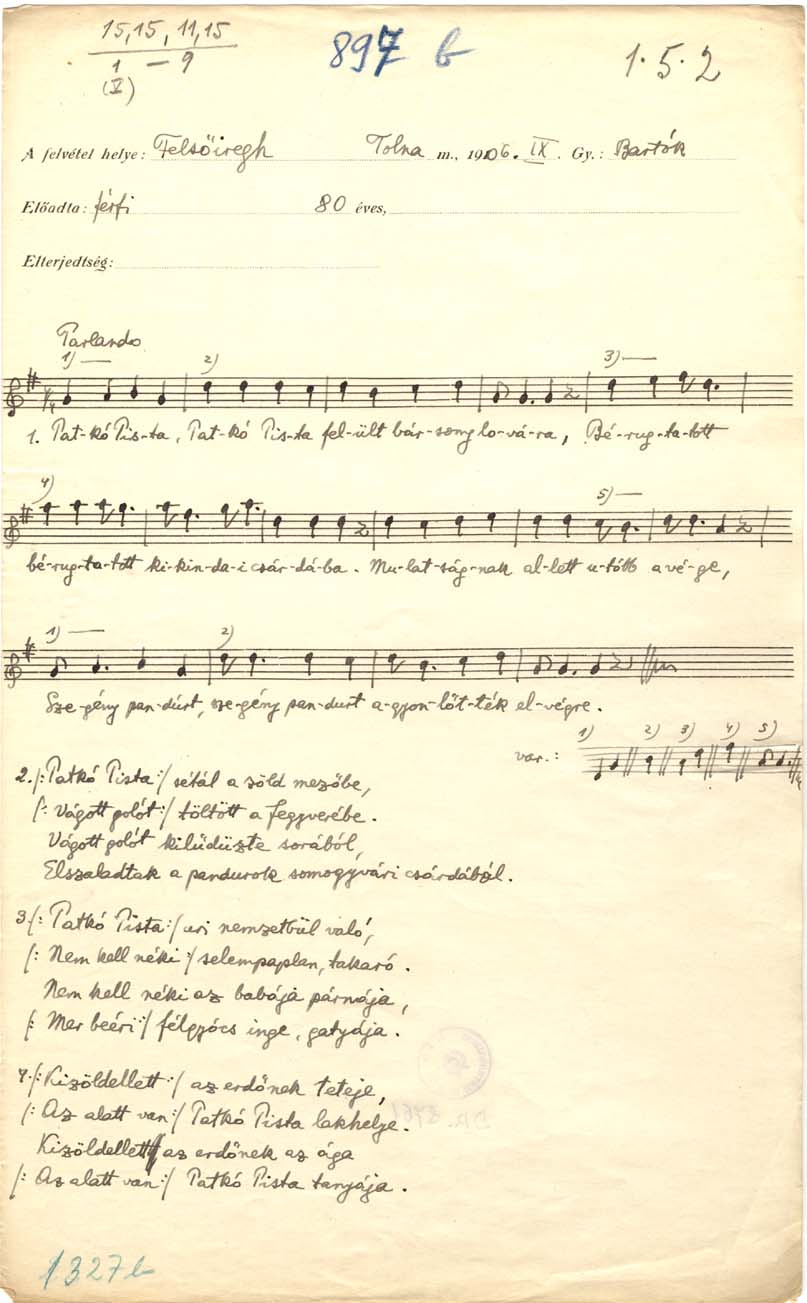 15,15, 11,15
1 – 9
(V)
897 b
1·5·2
A felvétel helye: Felsőiregh Tolna m., 1906. IX. Gy.: Bartók
Előadta: férfi 80 éves,
Elterjedtség:
Parlando
1) 2) 3)
1. Pat-kó Pis-ta, Pat-kó Pis-ta fel-ült bár-sony lo-vá-ra, Bé-rug-ta-tott
4) 5)
bé-rug-ta-tott ki-kin-da-i csár-dá-ba. Mu-lat-ság-nak al-lett u-tóbb a vé-ge,
1) 2)
Sze-gény pan-dúrt, sze-gény pan-durt a-gyon-lőt-ték el-végre.
var.: 1) 2) 3) 4) 5)
2. /: Patkó Pista :/ sétál a zöld mezőbe,
/: Vágott golót :/ töltött a fegyverébe.
Vágott golót kilüdüzte sorából,
Elszaladtak a pandurok somogyvári csárdából.
3. /: Patkó Pista :/ uri nemzetbül való,
/: Nem kell néki :/ selempaplan, takaró.
Nem kell néki az babája párnája,
/: Mer beéri :/ félgyócs inge, gatyája.
4. /: Kizöldellett :/ az erdőnek teteje,
/: Az alatt van :/ Patkó Pista lakhelye.
Kizöldellett az erdőnek az ága
/: Az alatt van :/ Patkó Pista tanyája.
1327 b